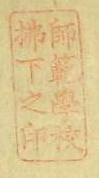 師範學校
拂下之印